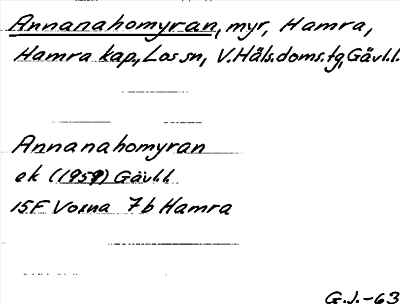 Annanahomyran, myr, Hamra,
Hamra kap, Los sn, V. Häls. doms. tg, Gävl. l.
Annanahomyran
ek (1959) Gävl. l.
15F Voxna 7b Hamra
G.J.-63